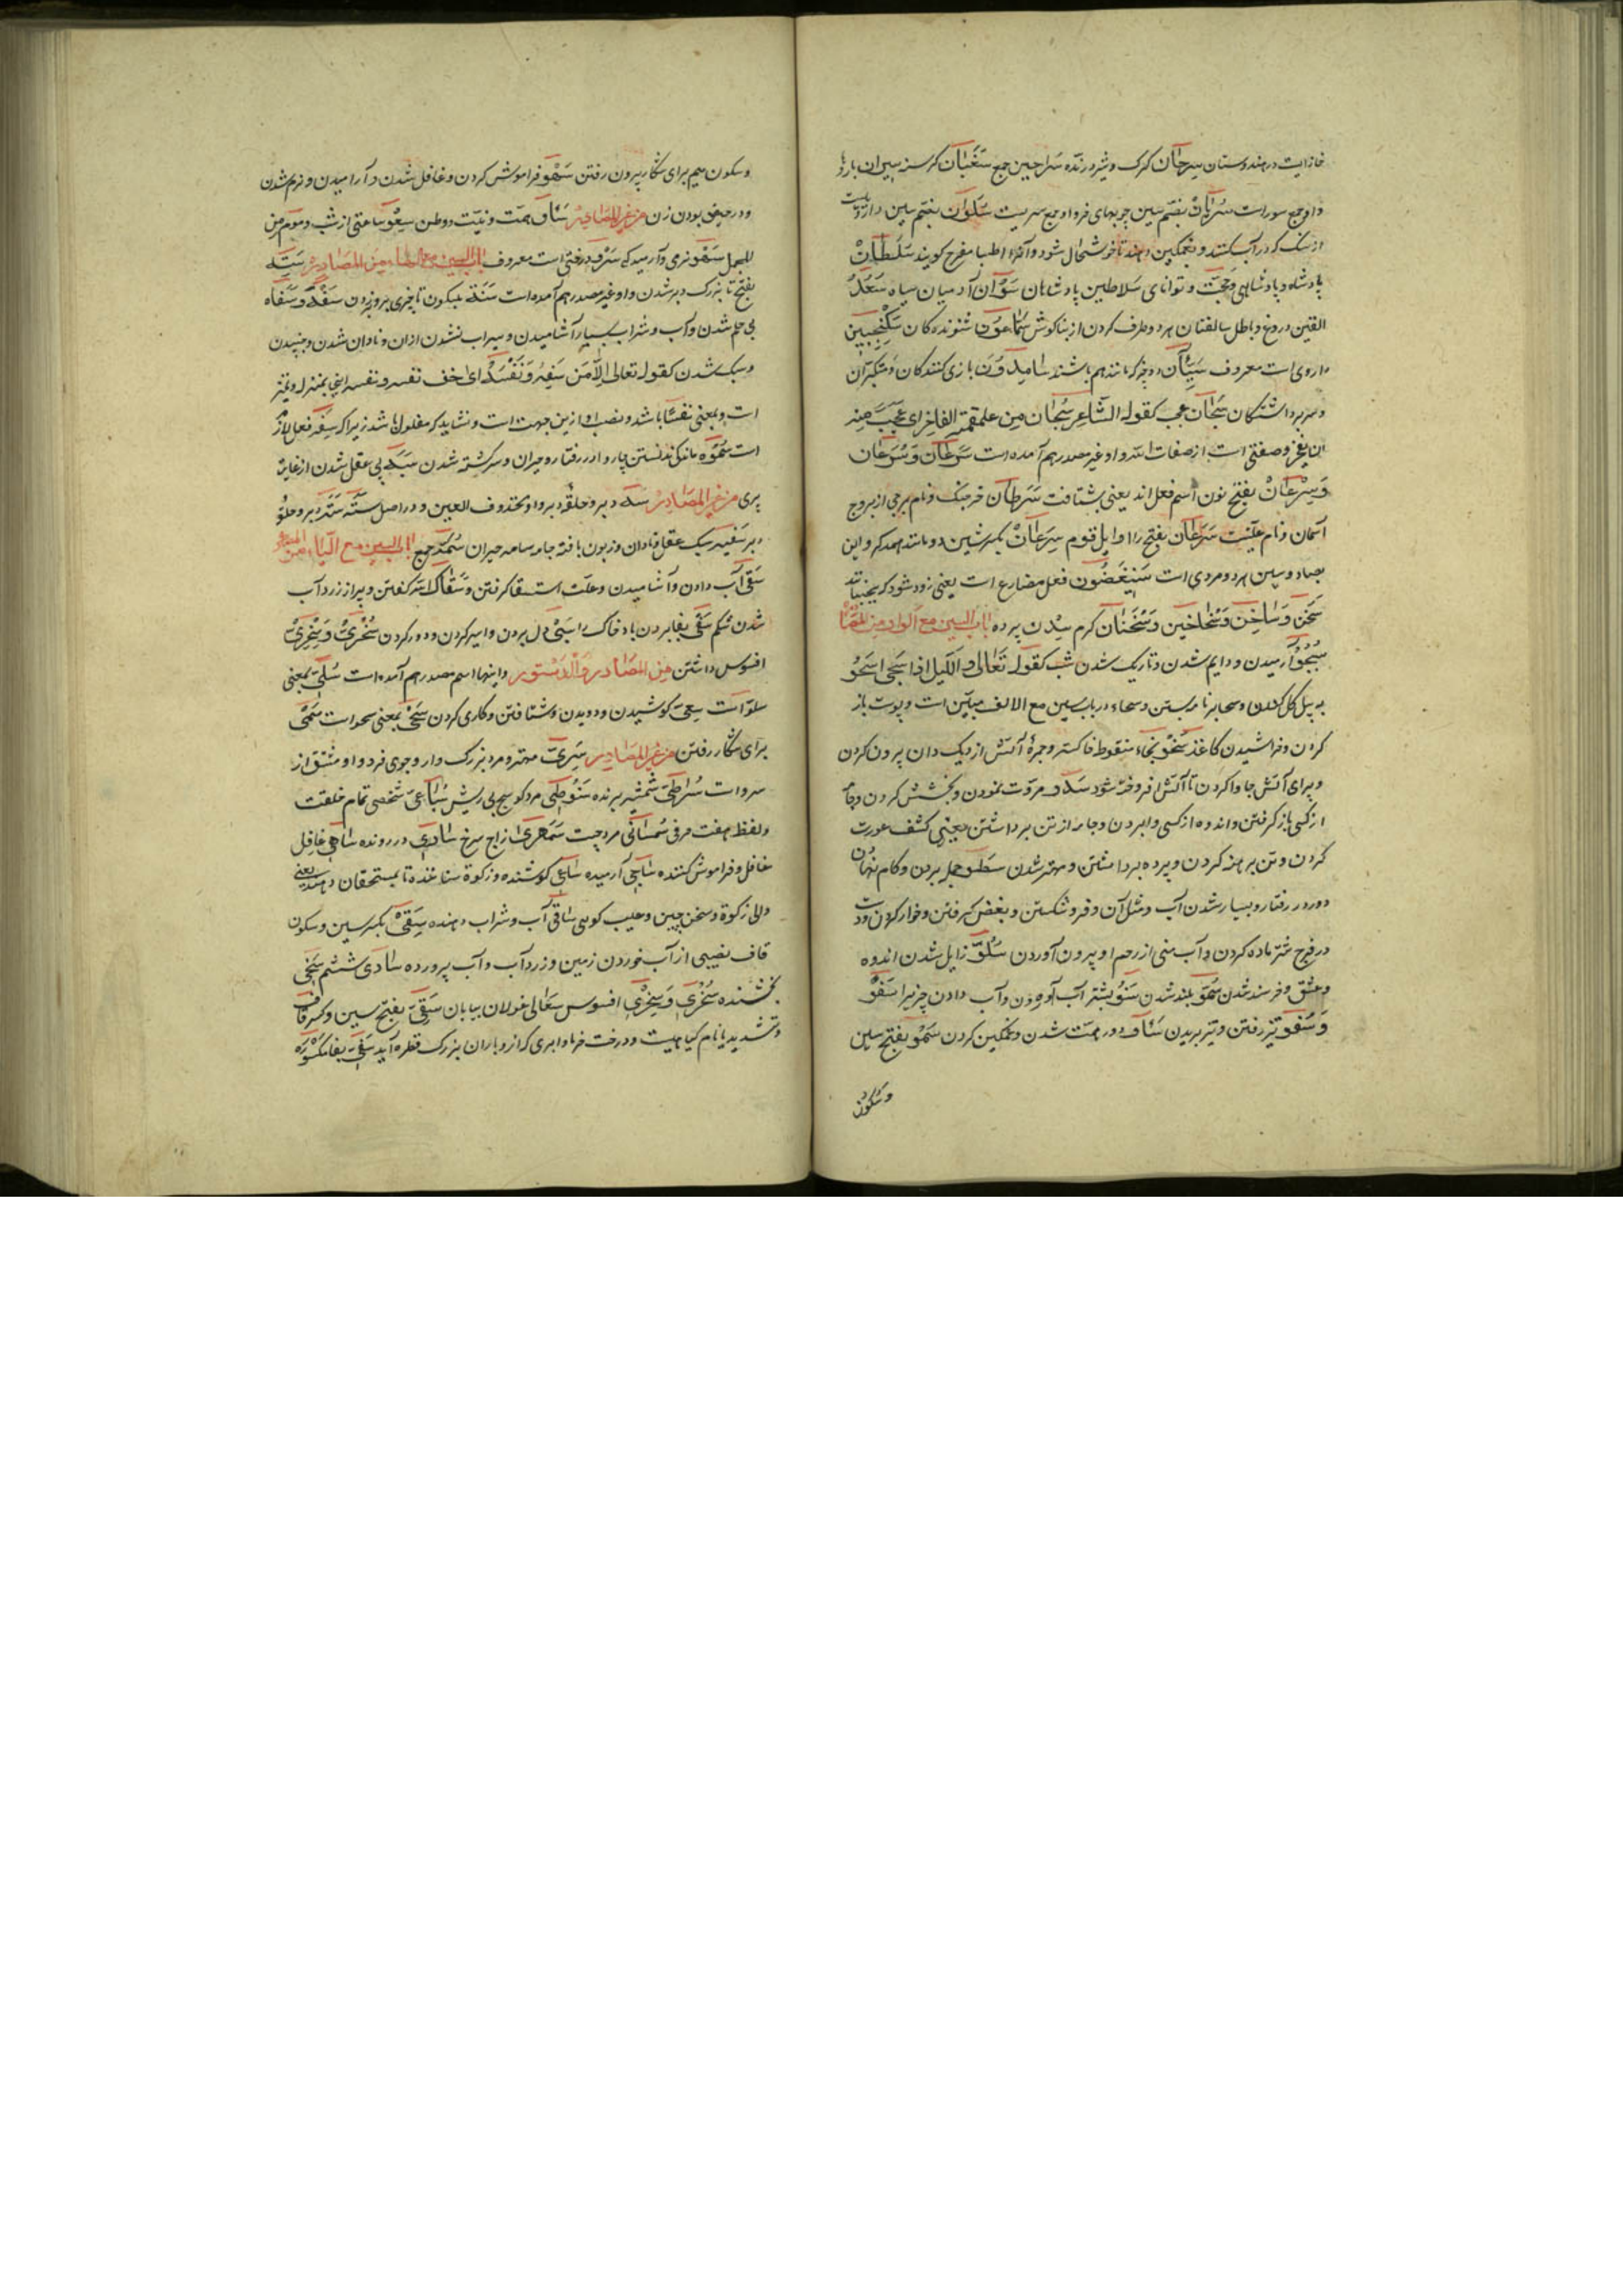 خانه ایست در هندوستان سرحان کرک و شیر درنده سراحین جمع سغبان کرسنه سیران بارو
و او جمع سور است سریان بضم سین جویهای فرد او جمع سریست سلوان بضم سین داروییست
از سنک که در آب کنند و بغمکین دهند تا خوشحال شود و آنرا اطبا مفرح کویند سلطان
پادشاه و پادشاهی و حجت و توانای سلاطین پادشاهان سودان آدمیان سیاه سعد
القین دروغ و باطل سالفتان هر دو طرف کردن از بناکوش سماعون شنونده کان سکنجبین
داروی است معروف سیان دو چیز که مانند هم باشند سامدون بازی کنندکان و متکبران
و سر برداشتکان سبحان عجب کقوله الشاعر سبحان من علقمة الفاخر ای عجب منه
اذ یفخر و صفتی است از صفات الله و او غیر مصدر هم آمده است سرعان و سرعان
و سرعان بفتح نون اسم فعل اند یعنی بشتافت سرطان خرجنک و نام برجی از بروج
آسمان و نام علتیست سرعان بفتح را اوایل قوم سرعان بکسر شین دو مانند همدکر و این
بصاد و سین هر دو مروی است سینغضون فعل مضارع است یعنی زود شود که بجنبانند
سخن و ساخن و سخاخین و سخنان کرم شدن پرده باب السین مع الواو من المصادر
سجو آرمیدن و دایم شدن و تاریک شدن شب کقوله تعالی و اللیل اذا سجی سحو
به بیل کل کندن و سحا بر نامه بستن و سحاء در باب سین مع الالف مبین است و پوست باز
کردن و خراشیدن کاغذ سخو بخاء منقوط خاکستر و جمرهٔ آتش از دیک دان بیرون کردن
و برای آتش جا وا کردن تا آتش افروخته شود سرو مروت نمودن و بخشش کردن و جامه
از کسی باز کرفتن و اندوه از کسی وا بردن و جامه از تن برداشتن یعنی کشف عورت
کردن و تن برهنه کردن و پرده برداشتن و مهتر شدن سطو حمله بردن و کام نهادن
دور در رفتار و بسیار شدن آب و مثل آن و فرو شکستن و بغض کرفتن و خوار کردن و دست
در فرج شتر ماده کردن و آب منی از رحم او بیرون آوردن سلو زایل شدن اندوه
و عشق و خرسند شدن سمو بلند شدن سنو بشتر آب آوردن و آب دادن چیزی را سفو
و سفو تیز رفتن و تیز پریدن سأو دور همت شدن و غمکین کردن سمو بفتح سین
و سکون
و سکون میم برای شکار بیرون رفتن سهو فراموش کردن و غافل شدن و آرامیدن و نرم شدن
و در حیض بودن زن من غیر المصادر سأو همت و نیت و وطن سعو ساعتی از شب و موم من
المجمل سهو نرمی و آرمیدکی سرو درختی است معروف باب السین مع الهاء من المصادر سته
بفتح تا بزرک دبر شدن و او غیر مصدر هم آمده است سته بسکون تا چیزی بر دبر زدن سفه و سفاه
بی حلم شدن و آب و شراب بسیار آشامیدن و سیراب نشدن ازان و نادان شدن و جنبیدن
و سبک شدن کقوله تعالی الا من سفه نفسه ای خف نفسه و نفسه اینجا بمنزله تمیز
است و بمعنی نفسا باشد و نصب او ازین جهت است و نشاید که مفعول باشد زیرا که سفه فعل لازم
است سموه ماندکی ندانستن چاروا در رفتار و حیران و سرکشته شدن سبه بی عقل شدن از غایت
پیری من غیر المصادر سه دبر و حلقهٔ دبر و او محذوف العین و در اصل سته سته دبر و حلقهٔ
دبر سفیه سبک عقل و نادان و زبون بافته جامه سامه حیران سمه جمع باب السین مع الیاء من المصادر
سقی آب دادن و آشامیدن و علت استسقا کرفتن و سقاک الله کفتن و پر از زرد آب
شدن شکم سفی بفا بردن باد خاک را سبی دل بردن و اسیر کردن و دور کردن سخری و سخری
افسوس داشتن من المصادر و الدستور و اینها اسم مصدر هم آمده است سلی بمعنی
سلو است سعی کوشیدن و دویدن و شتافتن و کاری کردن سحی بمعنی سحو است سمی
برای شکار رفتن من غیر المصادر سری مهتر و مرد بزرک وار و جوی فرد و او مشتق از
سرو است سراطی شمشیر برنده سنوطی مرد کوسج بی ریش سباعی شخصی تمام خلقت
و لفظ هفت حرفی سمهری ساری در رونده ساهی غافل
غافل و فراموش کننده ساجی آرمیده ساعی کوشنده و زکوة ستاننده تا بمستحقان دهد یعنی
والی زکوة و سخن چین و عیب کوی ساقی آب و شراب دهنده سقی بکسر سین و سکون
قاف نصیبی از آب خوردن زمین و زرد آب و آب پرورده سادی ششم سخی
بخشنده سخری و سخری افسوس سعالی غولان بیابان سقی بفتح سین و کسر قاف
و تشدید یا نام کیاهیست و درخت خرما و ابری که ازو باران بزرک قطره آید سفی بفا مکسوره